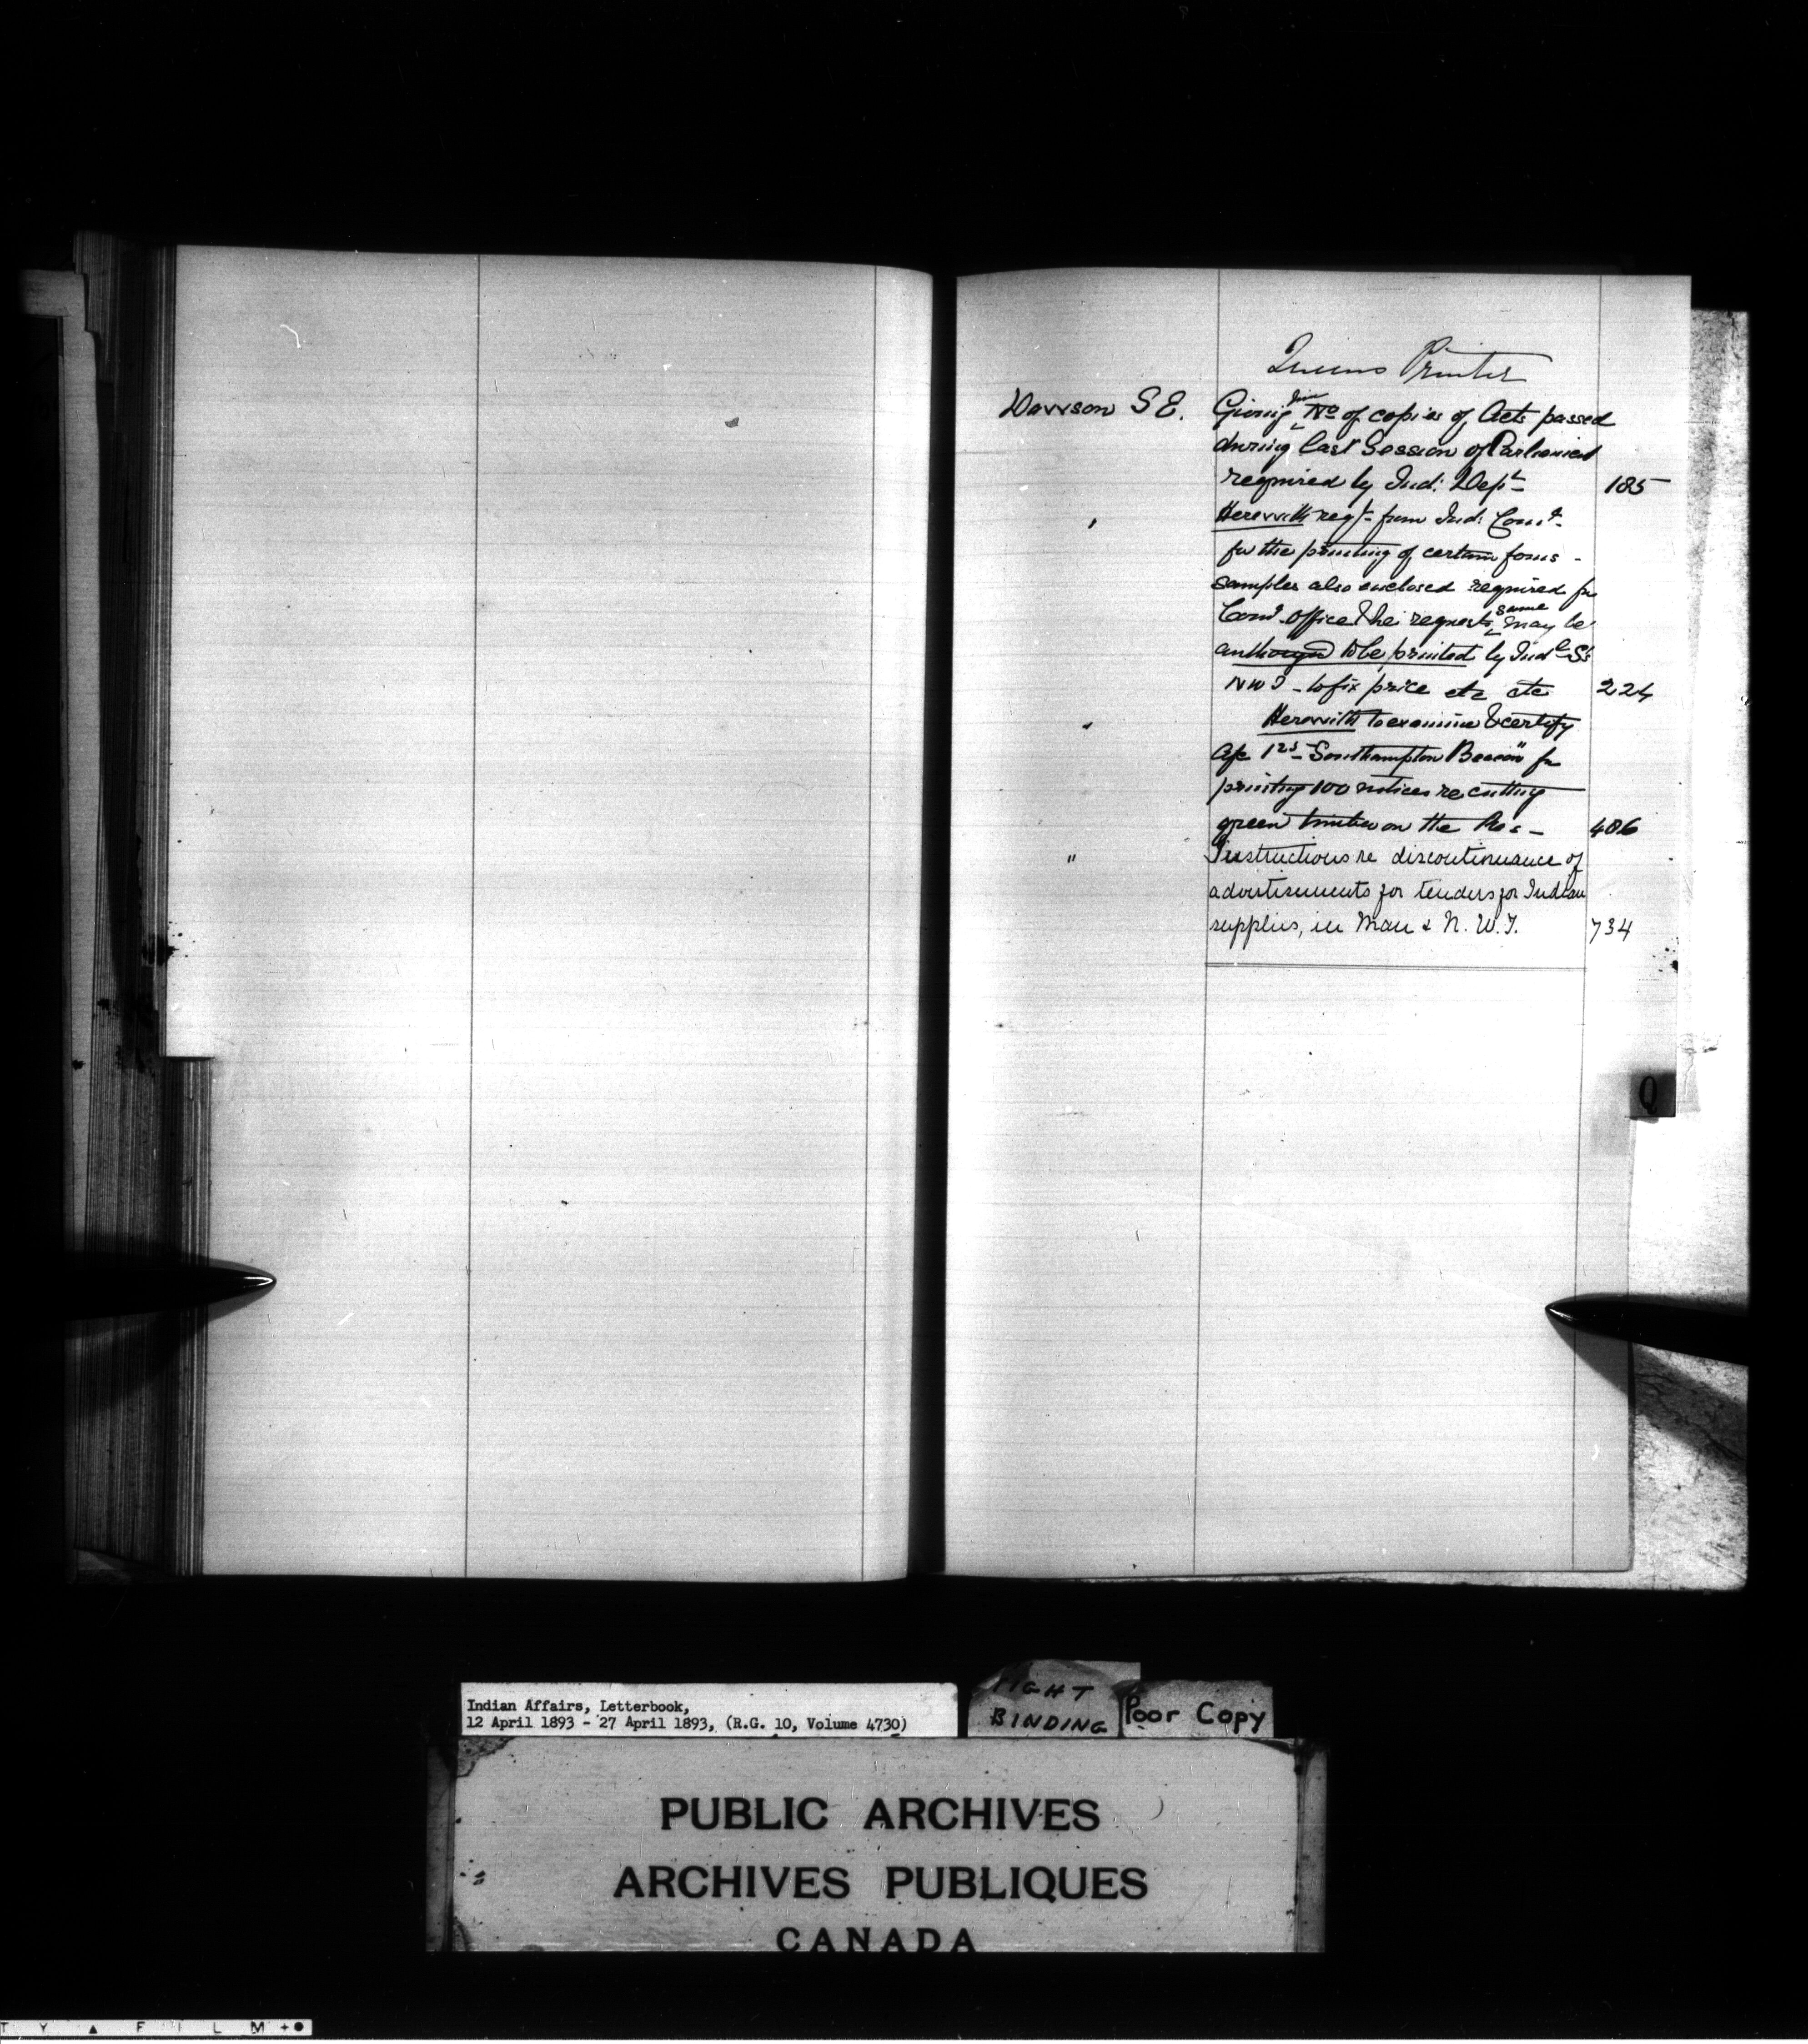 Queens Printer
Dawson S E. Giving him No of copies of Acts passed
during last Session of Parliament
required by Ind: Dept 185
" Herewith reqt from Ind: Comr
for the printing of certain forms -
samples also enclosed required for
Comr office & he requests same may be
to be printed by Indl Sl
NWT - to fix price etc etc 224
" Herewith to examine & certify
a/c "Southampton Beacon" for
printing 100 notices re cutting
green timber on the Res - 486
" Instructions re discontinuance of
advertisements for tenders for Indian
supplies, in Man & N. W. T. 734
Q
Indian Affairs, Letterbook,
12 April 1893 - 27 April 1893, (R.G. 10, Volume 4730)
TIGHT
BINDING
Poor Copy
PUBLIC ARCHIVES
ARCHIVES PUBLIQUES
CANADA
T Y ▲ F I L M +●